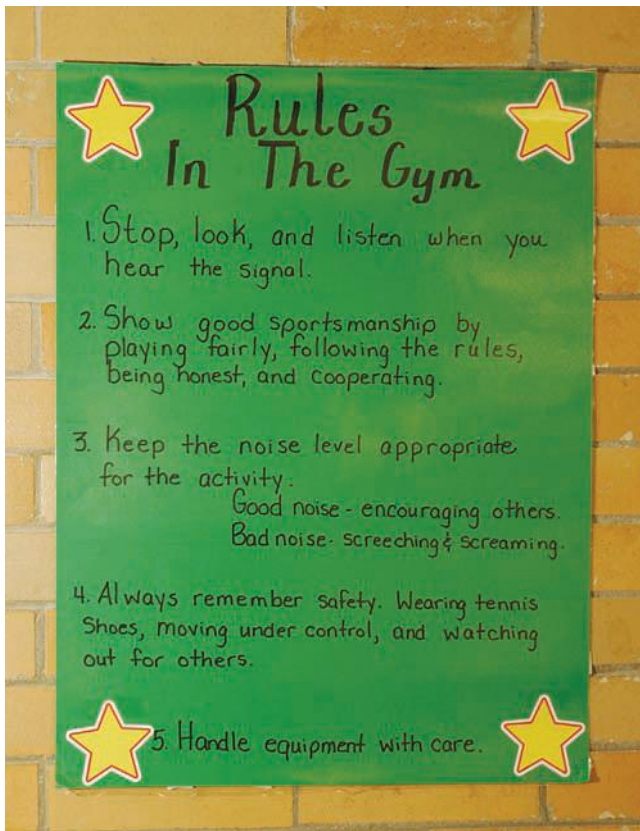 Rules
In The Gym
1. Stop, look, and listen when you
hear the signal.
2. Show good sportsmanship by
playing fairly, following the rules,
being honest, and cooperating.
3. Keep the noise level appropriate
for the activity.
Good noise - encouraging others.
Bad noise - screeching & screaming.
4. Always remember safety. Wearing tennis
Shoes, moving under control, and watching
out for others.
5. Handle equipment with care.